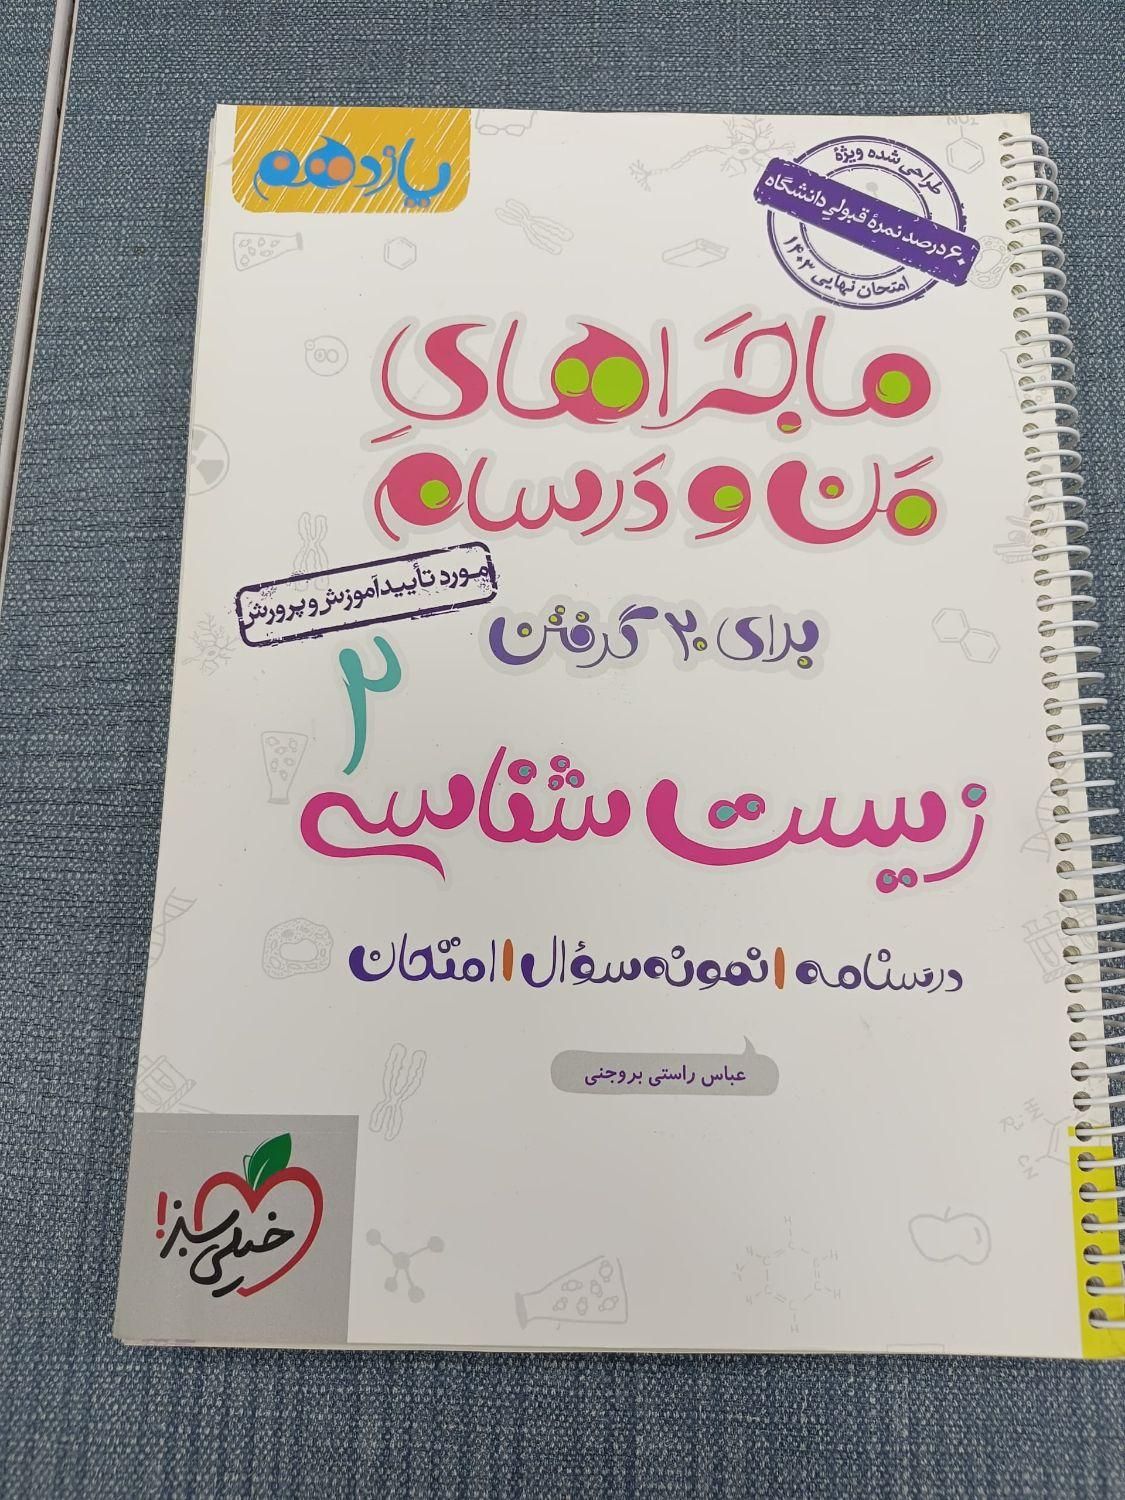 یازدهم
طراحی شده ویژهٔ
۶۰ درصد نمرهٔ قبولی دانشگاه
امتحان نهایی ۱۴۰۳
ماجراهایِ
مَن و دَرسام
مورد تأیید آموزش و پرورش
برای ۲۰ گرفتن
۲
زیست شناسی
درسنامه | نمونه سؤال | امتحان
عباس راستی بروجنی
خیلی سبز!